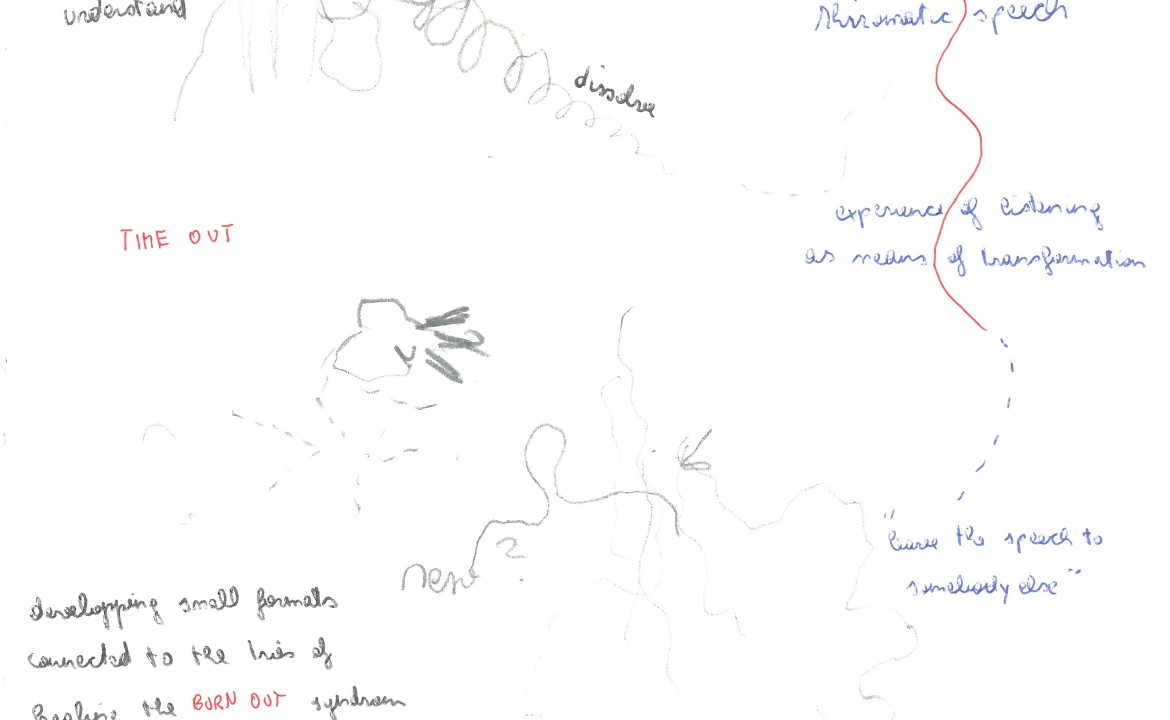 understand
dissolve
Rhizomatic speech
TIME OUT
experience of listening
as means of transformation
"leave the speech to
somebody else"
?
developping small formats
connected to the of
the BURN OUT syndrom